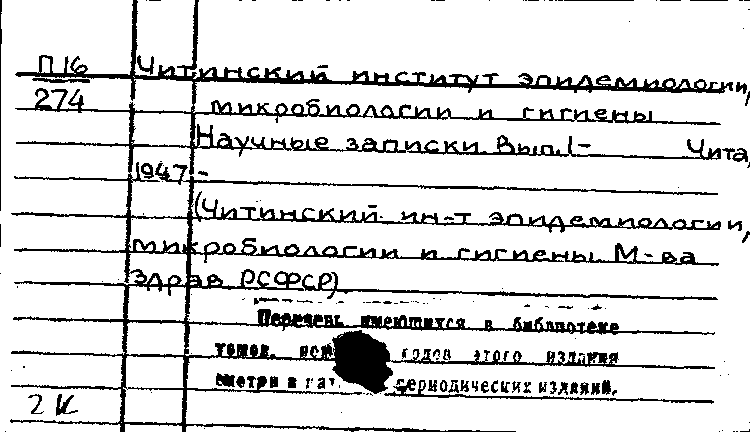 П16 Читинский институт эпидемиологии,
274 микробиологии и гигиены
Научные записки Вып.1- Чита,
1947 -
(Читинский ин-т эпидемиологии,
микробиологии и гигиены М-ва
здрав РСФСР)
Перечень имеющихся в библиотеке
томов, годов этого издания
смотри в периодических изданий.
2 К